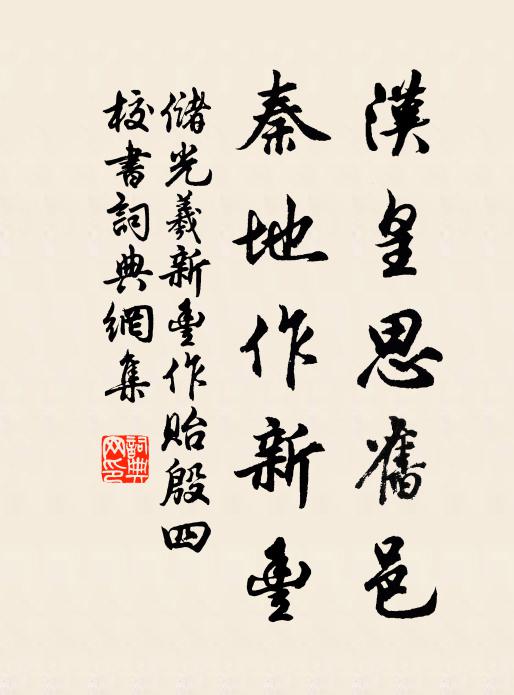 漢皇思舊邑
秦地作新豐
儲光羲新豐作貽殷四
校書詞典網集
詞典网印